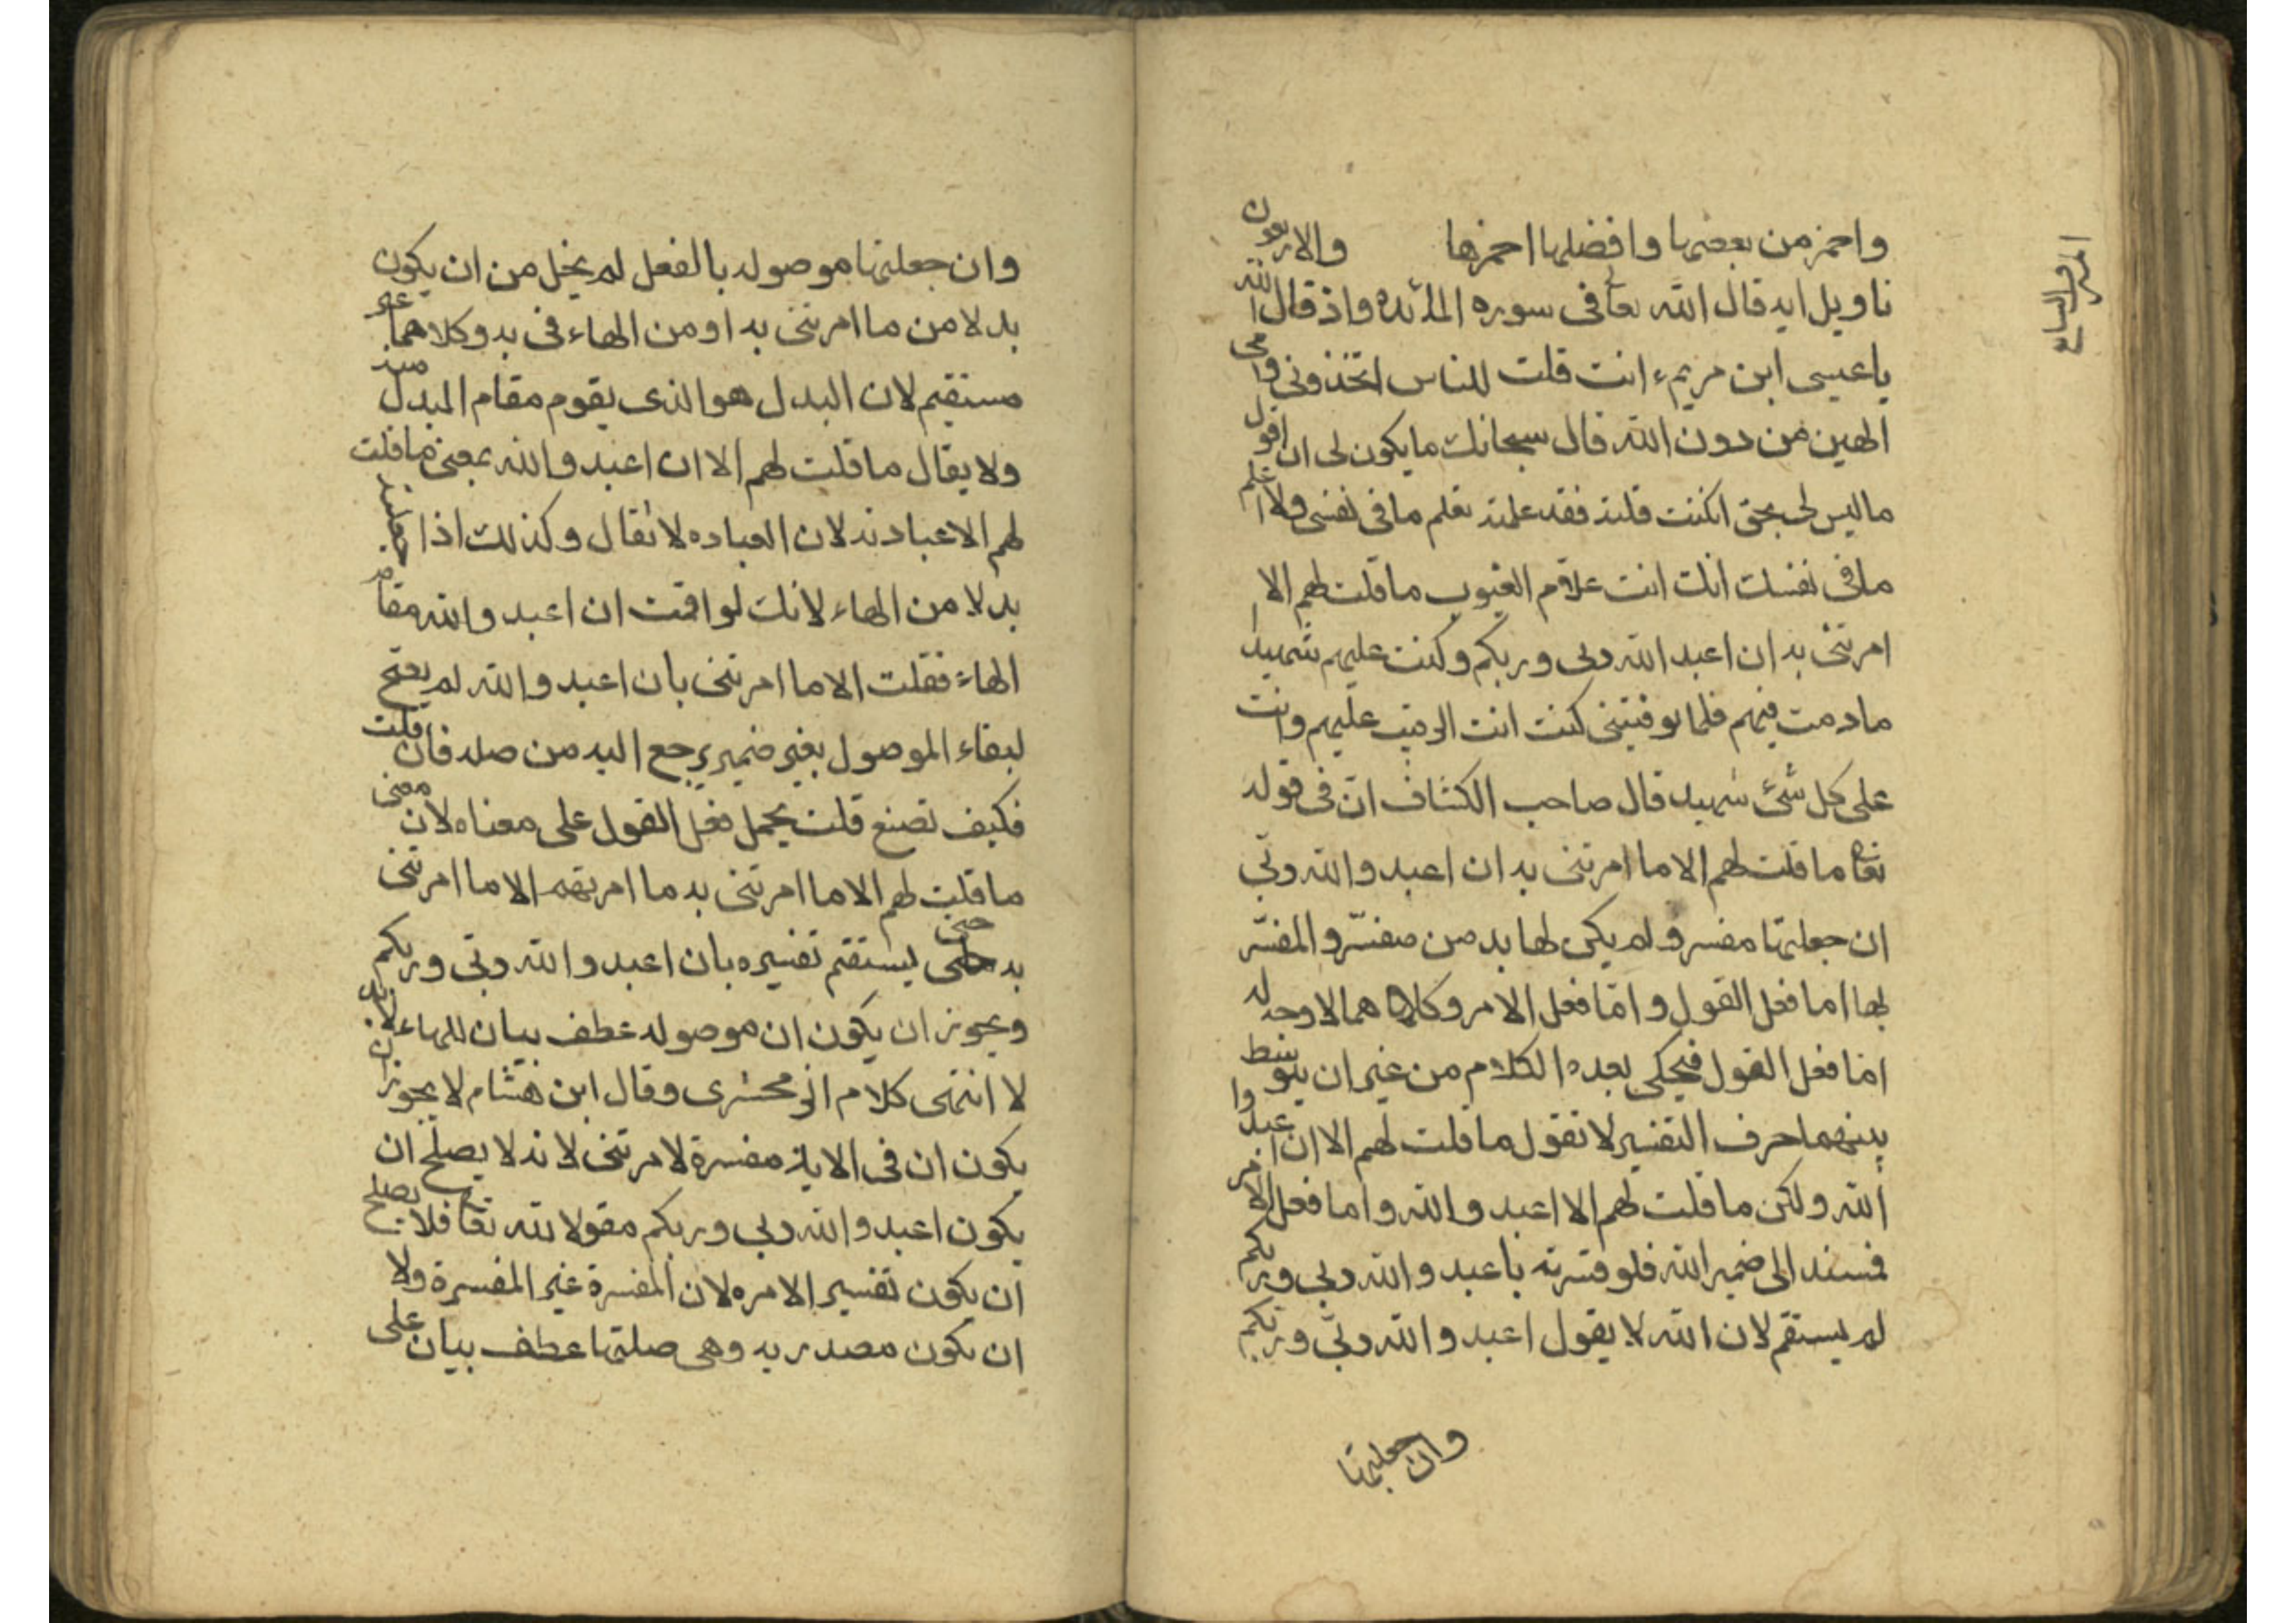 واحمز من بعضها وافضلها احمزها والاربعون
تاويل ايه قال الله تعا فى سوره المائده واذ قال الله
يا عيسى ابن مريم ء انت قلت للناس اتخذونى وامى
الهين من دون الله قال سبحانك ما يكون لى ان اقول
ما ليس لى بحق ان كنت قلته فقد علمته تعلم ما فى نفسى ولا اعلم
ما فى نفسك انك انت علام الغيوب ما قلت لهم الا ما
امرتنى به ان اعبدوا الله ربى وربكم وكنت عليهم شهيدا
ما دمت فيهم فلما توفيتنى كنت انت الرقيب عليهم وانت
على كل شئ شهيد قال صاحب الكشاف انّ فى قوله
تعا ما قلت لهم الا ما امرتنى به ان اعبدوا الله ربّى
ان جعلتها مفسره لم يكن لها بد من مفسّر والمفسّر
لها اما فعل القول وامّا فعل الامر وكلاهما لا وجه له
اما فعل القول فيحكى بعده الكلام من غير ان يتوسط
بينهما حرف التفسير لا تقول ما قلت لهم الا ان اعبدوا
الله ولكن ما قلت لهم الا اعبدوا الله واما فعل الامر
فمسند الى ضمير الله فلو فسّرته باعبدوا الله ربى وربكم
لم يستقم لان الله لا يقول اعبدوا الله ربّى وربّكم
وان جعلتها
المرو السابع
وان جعلتها موصوله بالفعل لم يخل من ان يكون
بدلا من ما امرتنى به او من الهاء فى به وكلاهما غير
مستقيم لان البدل هو الذى يقوم مقام المبدل منه
ولا يقال ما قلت لهم الا ان اعبدوا الله بمعنى ما قلت
لهم الا عبادته لان العباده لا تقال وكذلك اذا جعلته
بدلا من الهاء لانك لو اقمت ان اعبدوا الله مقام
الهاء فقلت الا ما امرتنى بان اعبدوا الله لم يصح
لبقاء الموصول بغير ضمير يرجع اليه من صله فان قلت
فكيف تصنع قلت يحمل فعل القول على معناه لان معنى
ما قلت لهم الا ما امرتنى به ما امرتهم الا ما امرتنى
به حتى يستقم تفسيره بان اعبدوا الله ربّى وربكم
ويجوز ان يكون ان موصوله عطف بيان للهاء لا بد
لا انتهى كلام الزمحشرى وقال ابن هشام لا يجوز ان
يكون ان فى الاية مفسرة لامرتنى لانه لا يصلح ان
يكون اعبدوا الله ربى وربكم مقولا لله تعا فلا يصلح
ان يكون تفسير الامره لان المفسرة غير المفسرة ولا
ان يكون مصدريه وهى صلتها عطف بيان على